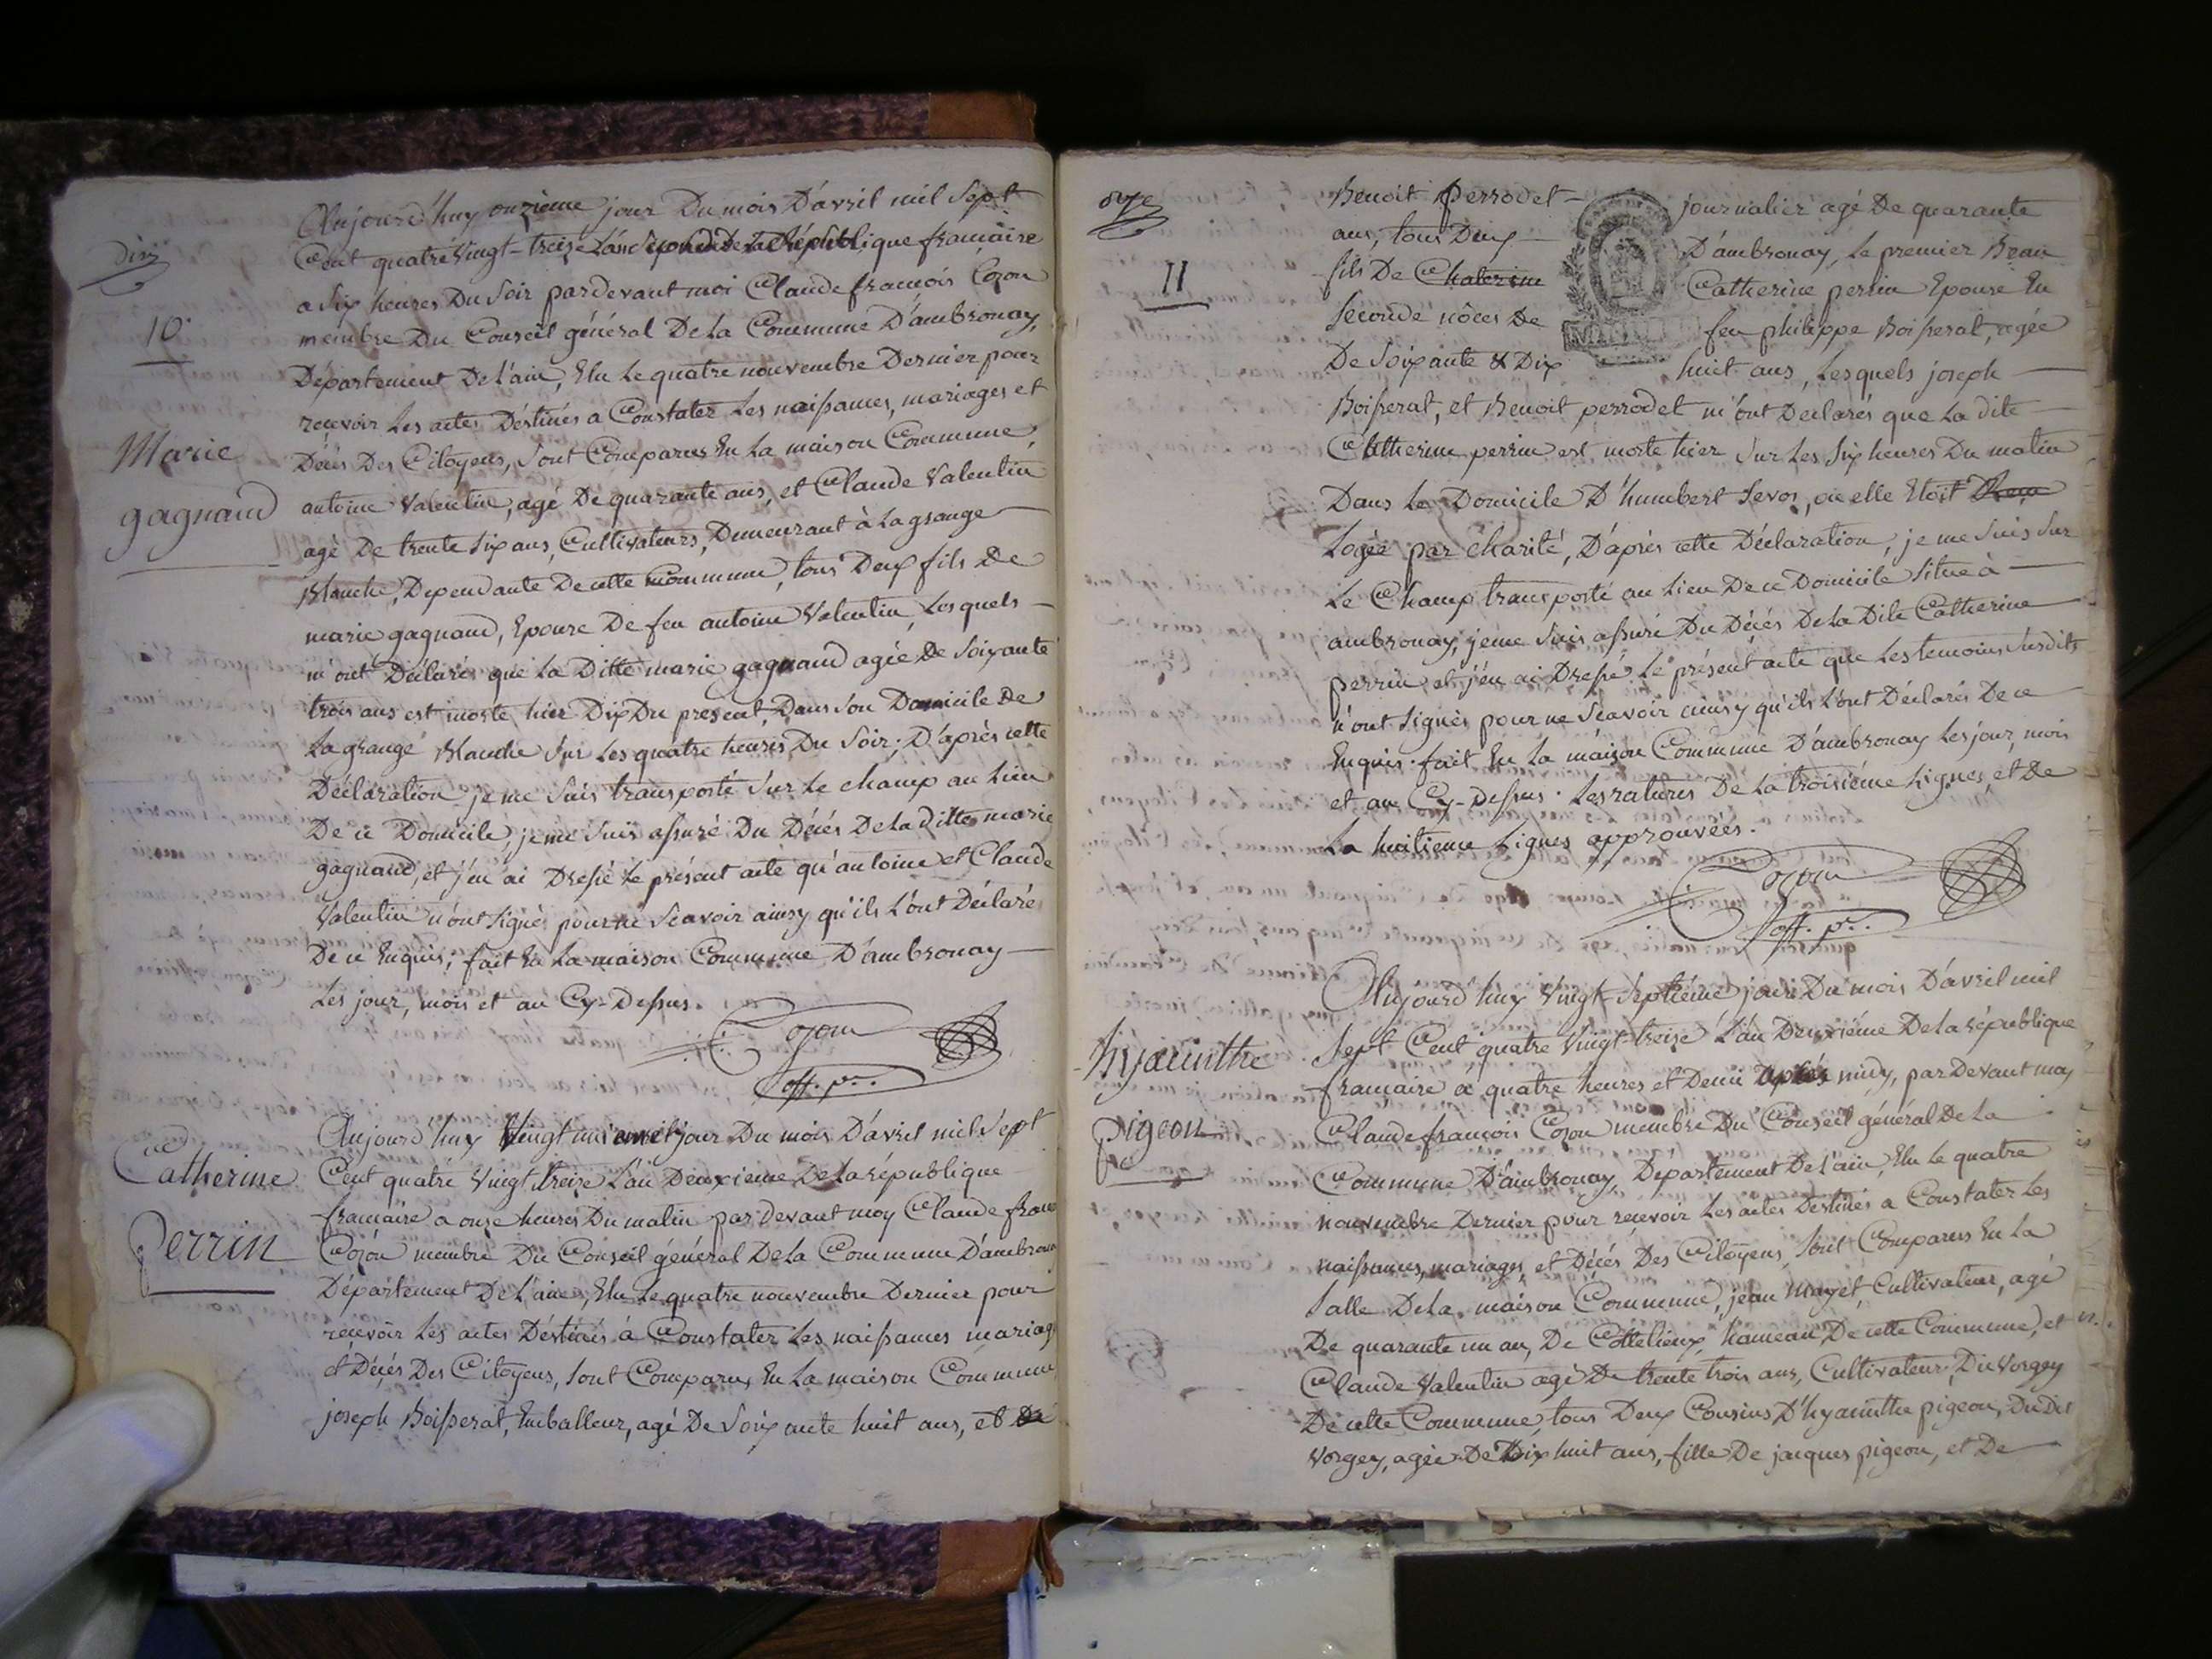 dix
10
Marie
gagnand
Aujourd'huy onzième jour Du mois D'avril mil Sept
Cent quatre Vingt-treize L'an Second De La République française
a Six heures Du Soir pardevant moi Claude françois Cozon
membre Du Conseil général De La Commune D'ambronay,
Département De L'ain, Elu Le quatre nouvembre Dernier pour
recevoir Les actes Déstinés a Constater Les naissances, mariages et
Décés Des Citoyens, Sont Comparus En La maison Commune,
antoine Valentin, agé De quarante ans, et Claude Valentin
agé De trente Six ans, Cultivateurs, Demeurant à La grange
Blanche, Dependante De cette Commune, tous Deux fils De
marie gagnand, Epouse De feu antoine Valentin, Lesquels
m'ont Déclarés que La Ditte marie gagnand agée De Soixante
trois ans est morte hier Dix Du present, Dans Son Domicile De
La grange Blanche Sur Les quatre heures Du Soir; D'après cette
Déclaration je me Suis transporté Sur Le champ au Lieu
De ce Domicile, je me Suis assuré Du Décés De La ditte marie
gagnand, et j'en ai Dressé Le présent acte qu'antoine et Claude
Valentin n'ont Signés pour ne Scavoir ainsy qu'ils L'ont Déclaré
De ce Enquis; fait En La maison Commune D'ambronay
Les jour, mois et an Cy-Dessus.
Cozon
off. p.
Catherine
Perrin
Aujourd'huy Vingt jour Du mois D'avril mil Sept
Cent quatre Vingt treize L'an Deuxieme De La république
francaire a onze heures Du matin par devant moy Claude franc
Cozon membre Du Conseil général De La Commune D'ambronay
Département De L'ain, Elu Le quatre nouvembre Dernier pour
recevoir Les actes Déstinés à Constater Les naissances mariage
et Décés Des Citoyens, Sont Comparus En La maison Commune
joseph Boisserat, Emballeur, agé De Soixante huit ans, et De
onze
11
Benoit perrodet journalier agé De quarante
ans, tous Deux D'ambronay, Le premier Beau
fils De Chaterine Catherine perrin Epouse En
Seconde nôces De feu philippe Boisserat, agée
De Soixante & Dix huit ans, Lesquels joseph
Boisserat, et Benoit perrodet m'ont Declarés que La dite
Catherine perrin est morte hier Sur Les Six heures Du matin
Dans Le Domicile D'humbert Sevos, où elle Etoit
Logée par charité, D'après cette Déclaration, je me Suis Sur
Le Champ transporté au Lieu De ce Domicile Situé à
ambronay, je me Suis assuré Du Décés De La Dite Catherine
perrin, et j'en ai Dressé Le présent acte que Les temoins Susdits
n'ont Signés pour ne Scavoir ainsy qu'ils L'ont Déclarés De ce
Enquis. fait En La maison Commune D'ambronay Les jour, mois
et an Cy-Dessus. Les ratures De La troisiéme Lignes, et De
La huitieme Lignes approuvées.
Cozon
off. p.
hyacinthe
pigeon
Aujourd'huy Vingt-Septiéme jour Du mois D'avril mil
Sept Cent quatre Vingt-treize L'an Deuxiéme De La république
française a quatre heures et Demi après midy, par Devant moy
Claude françois Cozon membre Du Conseil général De La
Commune D'ambronay, Departement De L'ain, Elu Le quatre
nouvembre Dernier pour reçevoir Les actes Destinés a Constater Les
naissances, mariages, et Décés Des Citoyens, Sont Comparus En La
Salle De La maison Commune, jean Mayet, Cultivateur, agé
De quarante un an, De Cottelieux, hameau De cette Commune, et
Claude Valentin agé De trente trois ans, Cultivateur, Du Vorgey
De cette Commune, tous Deux Cousins D'hyacinthe pigeon, Du Dit
Vorgey, agée De Dix huit ans, fille De jacques pigeon, et De